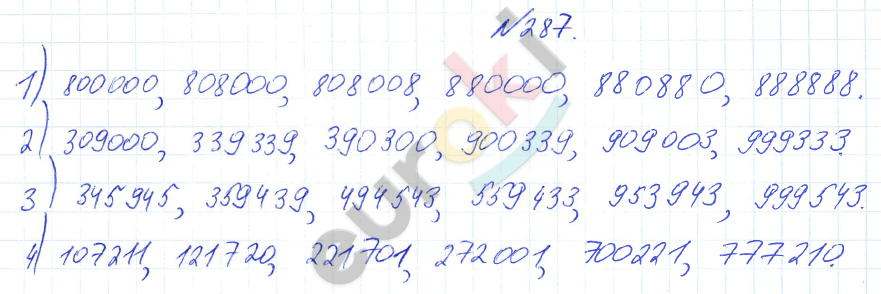 №287.
1) 800000, 808000, 808008, 880000, 880880, 888888.
2) 309000, 339339, 390300, 900339, 909003, 999333.
3) 345945, 359439, 494543, 559433, 953943, 999543.
4) 107211, 121720, 221701, 272001, 700221, 777210.
euroki